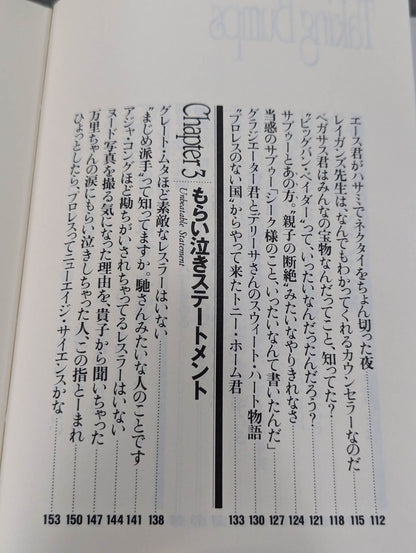 Taking Bumps
エース君がハサミでネクタイをちょん切った夜 112
レイガンズ先生は、なんでもわかってくれるカウンセラーなのだ 115
ペガサス君はみんなの宝物なんだってこと、知ってた? 118
“ビッグバン・ベイダー”って、いったいなんだったんだろう? 121
サブゥーとあの方、親子の断絶みたいなやりきれなさ 124
当惑のサブゥー「シーク様のこと、いったいなんて書いたんだ」 127
グラジエーター君とデアリーサさんのスウィート・ハート物語 130
“プロレスのない国”からやって来たトニー・ホーム君 133
Chapter 3 もらい泣きステートメント
Unbeatable Statement
グレート・ムタほど素敵なレスラーはいない 138
“まじめ派手”って知ってますか。馳さんみたいな人のことです 141
アジャ・コングほど勘ちがいされちゃってるレスラーはいない 144
ヌード写真を撮る気になった理由を、貴子から聞いちゃった 147
万里ちゃんの涙にもらい泣きしちゃった人、この指とーまれ 150
ひょっとしたら、プロレスってニューエイジ・サイエンスかな 153